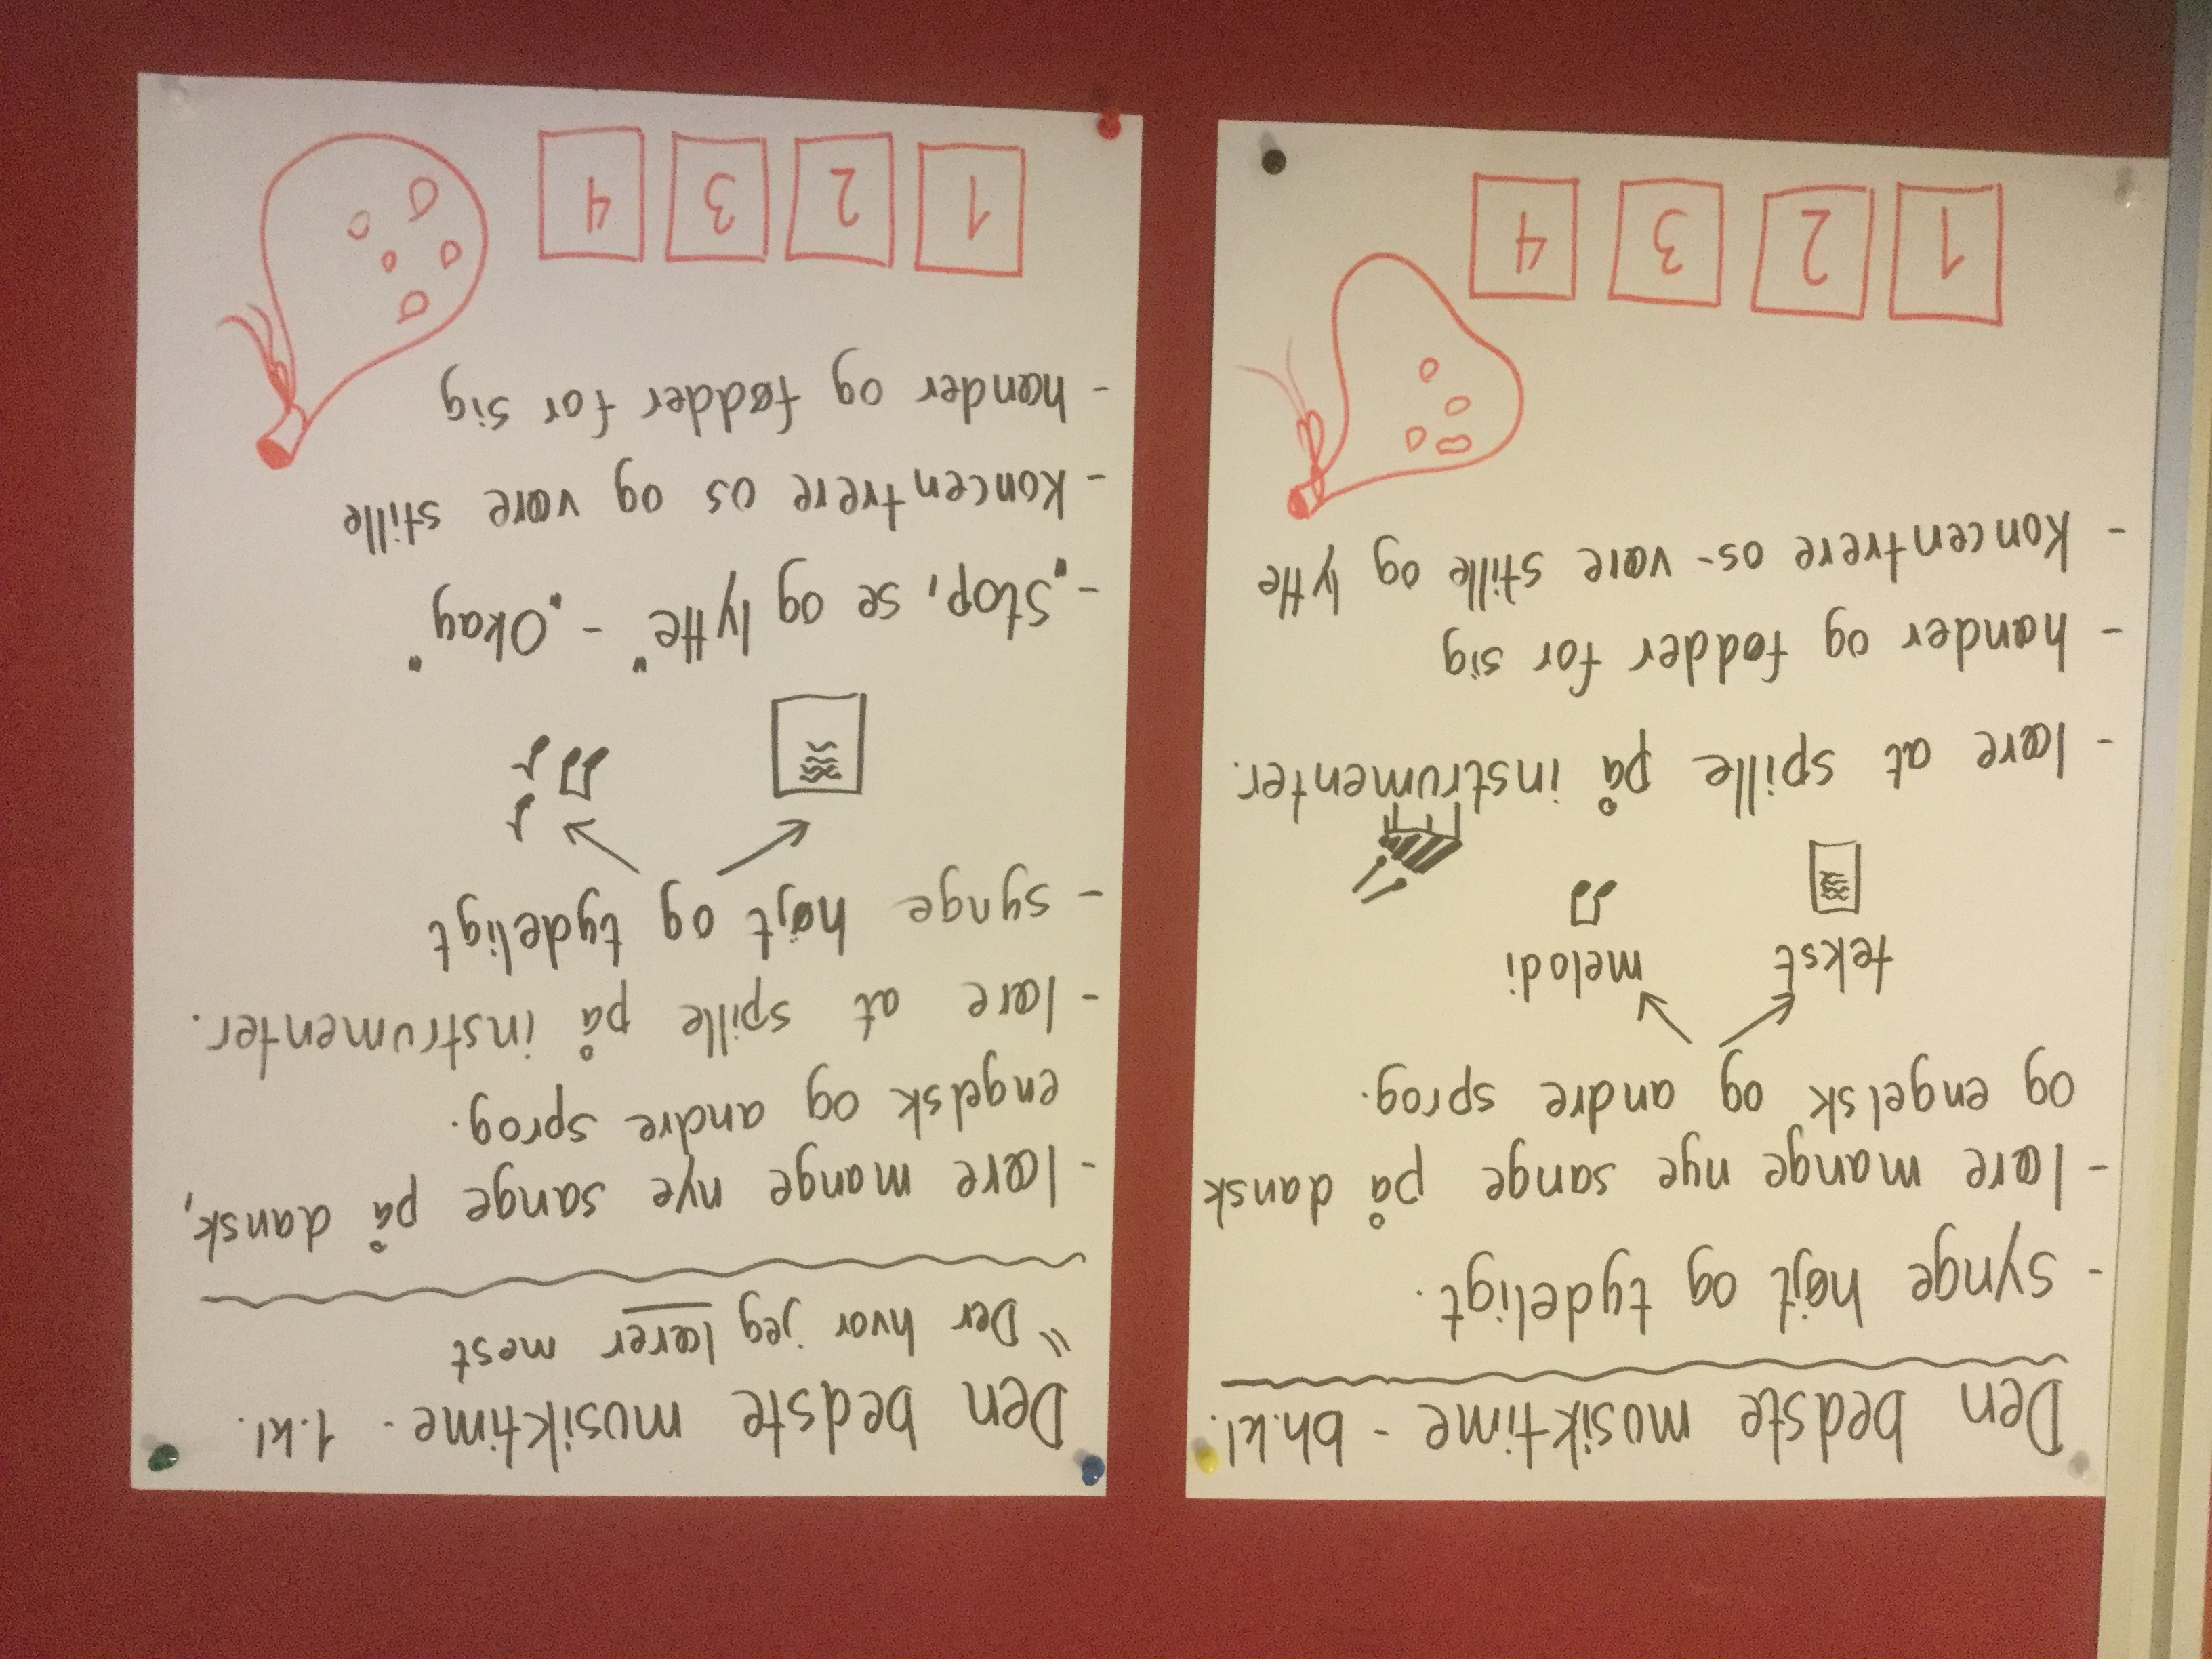 Den bedste musiktime - bh.kl.
- synge højt og tydeligt.
- lære mange nye sange på dansk
og engelsk og andre sprog.
tekst melodi
- lære at spille på instrumenter.
- hænder og fødder for sig
- koncentrere os - være stille og lytte
1 2 3 4
Den bedste musiktime - 1.kl.
"Der hvor jeg lærer mest
- lære mange nye sange på dansk,
engelsk og andre sprog.
- lære at spille på instrumenter.
- synge højt og tydeligt
- "Stop, se og lytte" - "Okay"
- koncentrere os og være stille
- hænder og fødder for sig
1 2 3 4